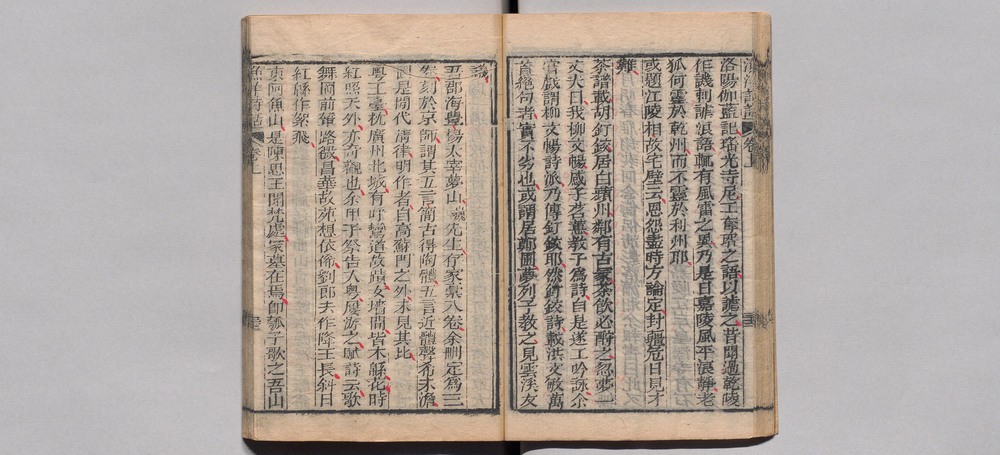 漁洋詩話 卷上
洛陽伽藍記瑤光寺尼工奪婿之語以謔之昔聞過乾陵
作譏刺謔浪語輒有風雷之異乃是日嘉陵風平浪靜老
狐何靈於乾州而不靈於利州耶
或題江陵相故宅壁云恩怨盡時方論定封疆危日見才
難
茶譜載胡釘鉸居白蘋州鄰有古冢茶飲必酹之忽夢一
丈夫曰我柳文暢感子茗惠教子為詩自是遂工吟詠余
嘗戲謂柳文暢詩派乃傳釘鉸耶然釘鉸詩載洪文敏萬
首絕句者實不劣也或謂居鄭圃夢列子教之見雲溪友
議
吾郡海豐楊太宰夢山巍先生存家稾八卷余刪定為三
卷刻於京師謂其五言簡古得陶體五言近體聲希味澹
固是間代清律明作者自高蘇門之外未見其比
粵王臺枕廣州北城有吁鸞道故蹟女墻間皆木緜花時
紅照天外亦奇觀也余甲子祭告入粵屢游之賦詩云歌
舞岡前輦路微昌華故苑想依俙劉郎去作降王長斜日
紅緜作絮飛
東阿魚山是陳思王聞梵處冢墓在焉即瓠子歌之吾山
漁洋詩話 卷上